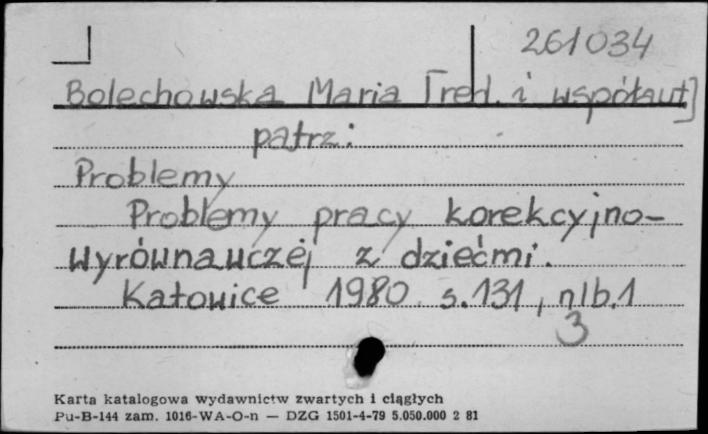 261034
Bolechowska Maria [red. i współaut]
patrz:
Problemy
Problemy pracy korekcyjno-
wyrównawczej z dziećmi.
Katowice 1980 s.131, nlb.1
3
Karta katalogowa wydawnictw zwartych i ciągłych
Pu-B-144 zam. 1016-WA-O-n — DZG 1501-4-79 5.050.000 2 81